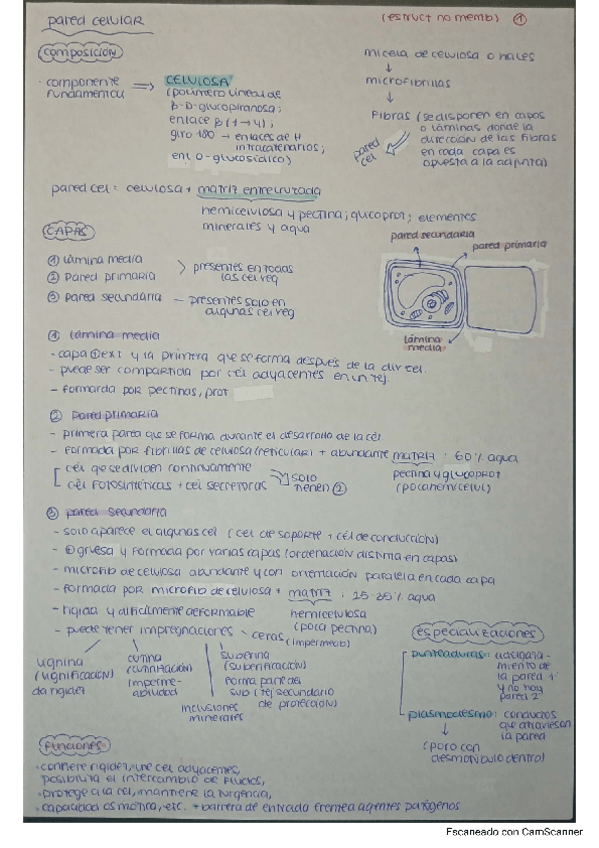 pared celular
(estruct no memb) ①
composición
· componente fundamental ⇒ CELULOSA
(polímero lineal de
β-D-glucopiranosa;
enlace β(1→4);
giro 180 → enlaces de H
intracatenarios;
enl O-glucosídico)
micela de celulosa o haces
↓
microfibrillas
↓
FIBRAS (se disponen en capas
o láminas donde la
dirección de las fibras
en cada capa es
opuesta a la adjunta)
pared
cel
pared cel = celulosa + matriz entrecruzada
hemicelulosa y pectina; glucoprot; elementes
minerales y agua
CAPAS
① lámina media
② pared primaria
> presentes en todas
las cel veg
③ pared secundaria – presentes solo en
algunas cel veg
pared secundaria
pared primaria
lámina
media
① lámina media
- capa ⊕ ext y la primera que se forma después de la div cel.
- puede ser compartida por cél adyacentes en un tej.
- formarda por pectinas, prot
② pared primaria
- primera pared que se forma durante el desarrollo de la cél
- formada por fibrillas de celulosa (reticular) + abundante matriz : 60% agua
pectina y glucoprot
(poca hemicelul)
cél que se dividen continuamente
cél fotosintéticas + cel secretoras
SOLO
tienen ②
③ pared secundaria
- solo aparece el algunas cel (cel de soporte + cél de conducción)
- ⊕ gruesa y formada por varias capas (ordenación distinta en capas)
- microfib de celulosa abundante y con orientación paralela en cada capa
- formada por microfib de celulosa + matriz : 25-35% agua
hemicelulosa
(poca pectina)
- rígida y difícilmente deformable
- puede tener impregnaciones – ceras (impermeab)
lignina
(lignificación)
da rigidez
cutina
(cutinización)
imperme-
abilidad
inclusiones
minerales
suberina
(suberificación)
forma parte del
sub (tej secundario
de protección)
especializaciones
punteaduras: adelgaza-
miento de
la pared 1ª
y no hay
pared 2ª
plasmodesmo: conductos
que atraviesan
la pared
↓
(poro con
desmotúbulo dentro)
funciones
· confiere rigidez, une cel adyacentes,
posibilita el intercambio de fluidos,
· protege a la cel, mantiene la turgencia,
· capacidad osmótica, etc. + barrera de entrada frente a agentes patógenos
Escaneado con CamScanner